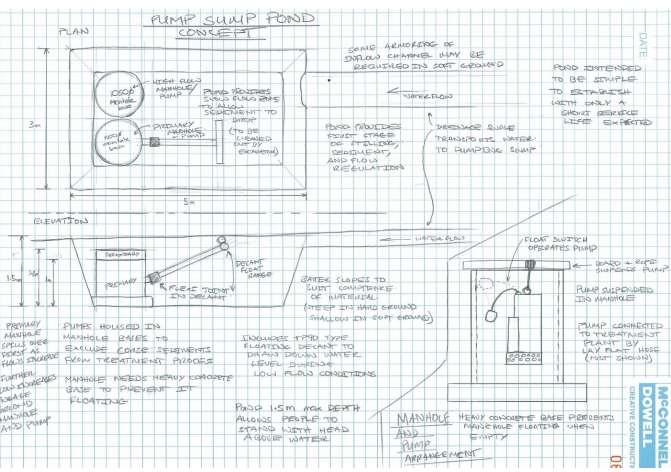 PUMP SUMP POND
CONCEPT
PLAN
SOME ARMORING OF
INFLOW CHANNEL MAY BE
REQUIRED IN SOFT GROUND
DATE
POND INTENDED
TO BE SIMPLE
TO ESTABLISH
WITH ONLY A
SHORT SERVICE
LIFE EXPECTED
HIGH FLOW
MANHOLE/
PUMP
1050φ
MANHOLE
PRIMARY MANHOLE
PUMP
POND PROVIDES
FLOW ZONE
TO ALLOW
SEDIMENT TO
DROP
(TO BE
CLEANED
OUT BY
EXCAVATOR)
WATERFLOW
POND PROVIDES
FIRST STAGE
OF STILLING,
SEDIMENT,
AND FLOW
REGULATION
DRAINAGE SWALE
TRANSPORTS WATER
TO PUMPING SUMP
3m
5m
ELEVATION
WATERFLOW
1.5m
SECONDARY
PRIMARY
FLEXI JOINT
IN DECANT
DECANT
FLOAT
RANGE
BATER SLOPES TO
SUIT COMPETENCE
OF MATERIAL
(STEEP IN HARD GROUND
SHALLOW IN SOFT GROUND)
FLOAT SWITCH
OPERATES PUMP
BOARD + ROPE
SUSPENDS PUMP
PUMP SUSPENDED
IN MANHOLE
PUMP CONNECTED
TO TREATMENT
PLANT BY
LAY FLAT HOSE
(NOT SHOWN)
PRIMARY
MANHOLE
SPILLS OVER
FIRST AS
FLOWS INCREASE
FURTHER
FLOW INCREASES
ENGAGE
SECOND
MANHOLE
AND PUMP
PUMPS HOUSED IN
MANHOLE BASES TO
EXCLUDE COARSE SEDIMENTS
FROM TREATMENT PROCESS
MANHOLE NEEDS HEAVY CONCRETE
BASE TO PREVENT IT
FLOATING
INCLUDES TP90 TYPE
FLOATING DECANT TO
DRAW DOWN WATER
LEVEL DURING
LOW FLOW CONDITIONS
POND 1.5m MAX DEPTH
ALLOWS PEOPLE TO
STAND WITH HEAD
ABOVE WATER
MANHOLE
AND
PUMP
ARRANGEMENT
HEAVY CONCRETE BASE PREVENTS
MANHOLE FLOATING WHEN
EMPTY
McCONNELL
DOWELL